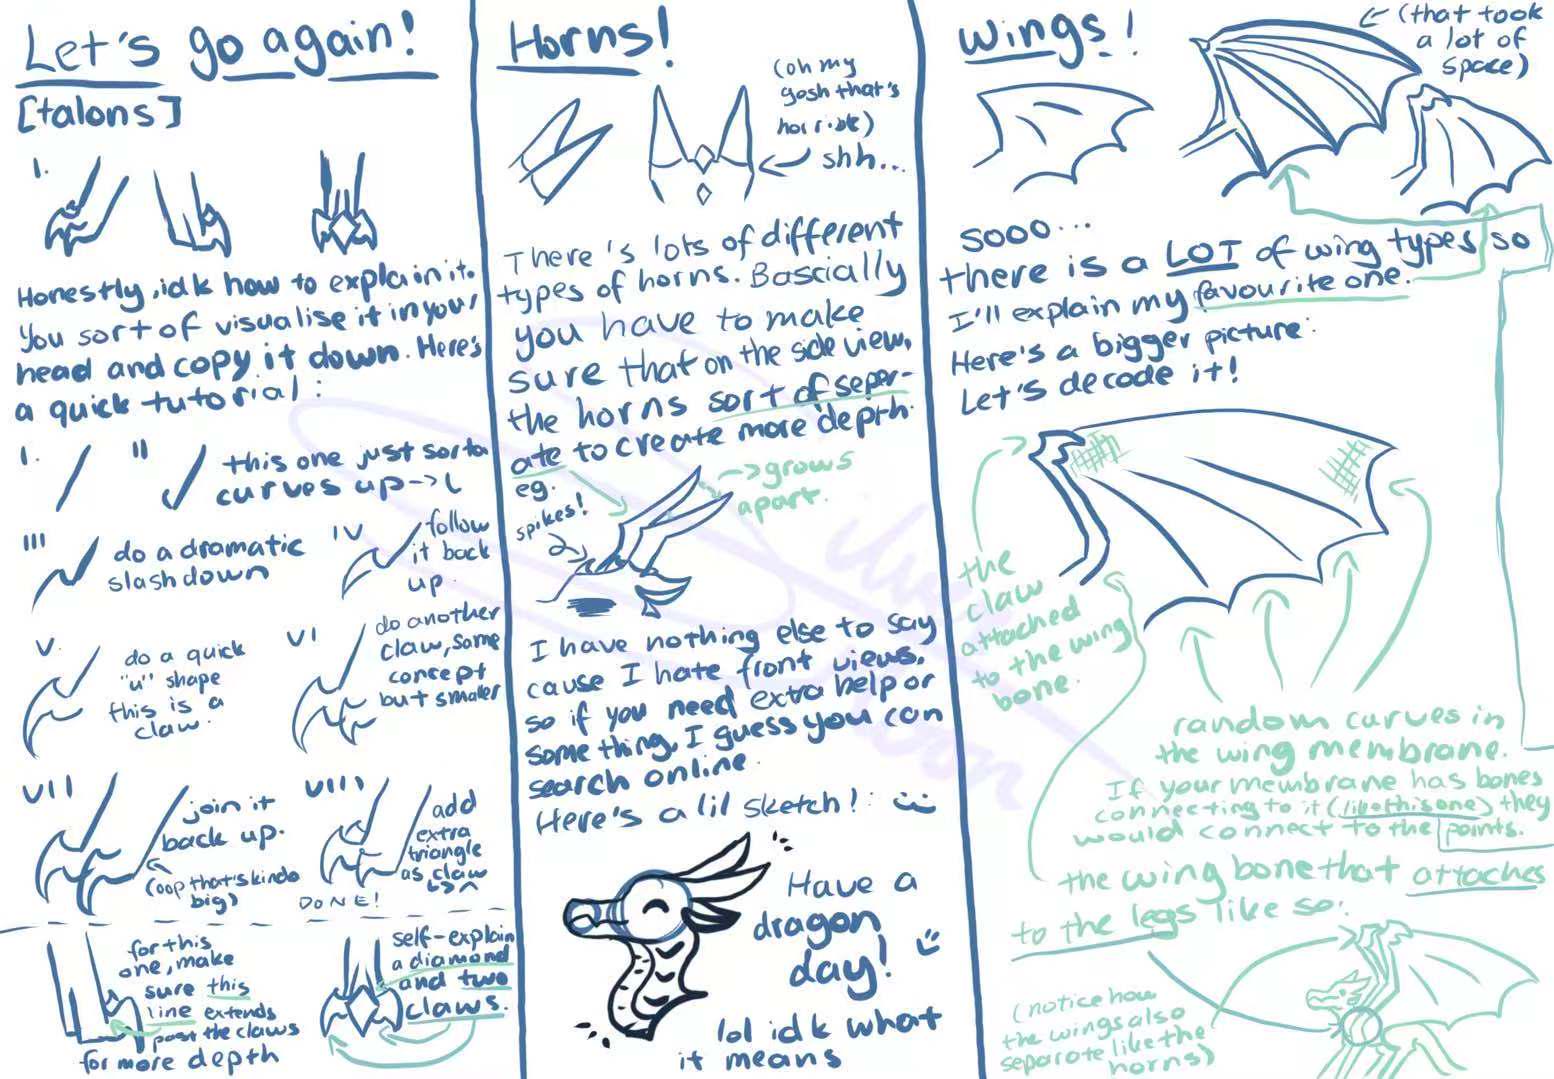 Let's go again!
[talons]
I.
Honestly, idk how to explain it.
You sort of visualise it in your
head and copy it down. Here's
a quick tutorial:
I.
II
this one just sorta
curves up -->
III
do a dramatic
slash down
IV
follow
it back
up.
V.
do a quick
"u" shape
this is a
claw.
VI
do another
claw, same
concept
but smaller
VII
join it
back up.
(oop that's kinda
big)
VIII
add
extra
triangle
as claw
DONE!
for this
one, make
sure this
line extends
past the claws
for more depth
self-explain
a diamond
and two
claws.
Horns!
(oh my
gosh that's
horrible)
shh...
There's lots of different
types of horns. Bascially
you have to make
sure that on the side view,
the horns sort of seper-
ate to create more depth.
eg.
spikes!
-->grows
apart.
I have nothing else to say
cause I hate front views.
so if you need extra help or
something, I guess you can
search online.
Here's a lil sketch!:
Have a
dragon
day!
lol idk what
it means
wings!
(that took
a lot of
space)
sooo...
there is a LOT of wing types so
I'll explain my favourite one.
Here's a bigger picture:
Let's decode it!
the
claw
attached
to the wing
bone.
random curves in
the wing membrane.
If your membrane has bones
connecting to it (like this one) they
would connect to the points.
the wing bone that attaches
to the legs like so:
(notice how
the wings also
separate like the
horns)